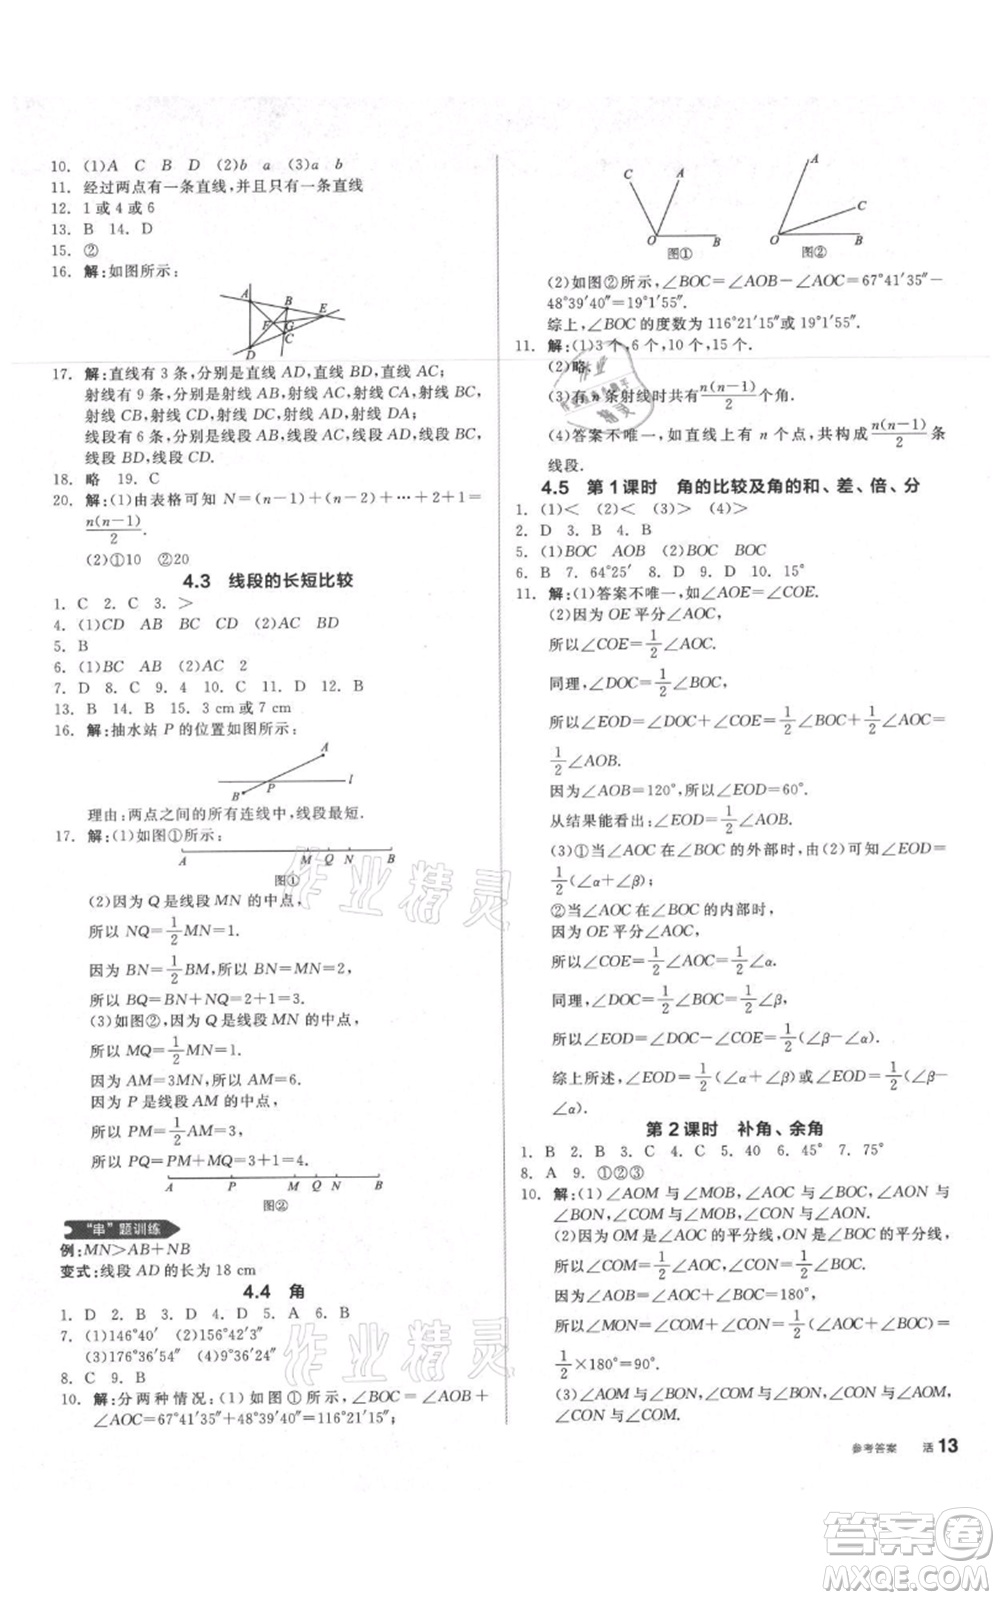 10. (1)A C B D (2)b a (3)a b
11. 经过两点有一条直线,并且只有一条直线
12. 1或4或6
13. B 14. D
15. ②
16. 解:如图所示:
A
B
E
F
G
C
D
17. 解:直线有3条,分别是直线AD,直线BD,直线AC;
射线有9条,分别是射线AD,射线AC,射线BD,射线CA,射线CD,射线DC,射线AD,射线DA;
线段有6条,分别是线段AB,线段AC,线段AD,线段BC,线段BD,线段CD.
18. 略 19. C
20. 解:(1)由表格可知N=(n-1)+(n-2)+…+2+1=
n(n-1)/2.
(2)①10 ②20
4.3 线段的长短比较
1. C 2. C 3. >
4. (1)CD AB BC (2)AC BD
5. B
6. (1)BC AB (2)AC 2
7. D 8. C 9. 4 10. C 11. D 12. B
13. B 14. B 15. 3 cm或7 cm
16. 解:抽水站P的位置如图所示:
A
P
l
B
理由:两点之间的所有连线中,线段最短.
17. 解:(1)如图①所示:
A M Q N B
图①
(2)因为Q是线段MN的中点,
所以NQ=1/2MN=1.
因为BN=1/2BM,所以BN=MN=2,
所以BQ=BN+NQ=2+1=3.
(3)如图②,因为Q是线段MN的中点,
所以MQ=1/2MN=1.
因为AM=3MN,所以AM=6.
因为P是线段AM的中点,
所以PM=1/2AM=3,
所以PQ=PM+MQ=3+1=4.
A P M Q N B
图②
“串”题训练
例:MN>AB+NB
变式:线段AD的长为18 cm
4.4 角
1. D 2. B 3. D 4. D 5. A 6. B
7. (1)146°40′ (2)156°42′3″
(3)176°36′54″ (4)9°36′23″
8. C 9. B
10. 解:分两种情况:(1)如图①所示,∠BOC=∠AOB+
∠AOC=67°41′35″+48°39′40″=116°21′15″;
C A
O B
图①
A
C
O B
图②
(2)如图②所示,∠BOC=∠AOB-∠AOC=67°41′35″-
48°39′40″=19°1′55″.
综上,∠BOC的度数为116°21′15″或19°1′55″.
11. 解:(1)3个,6个,10个,15个.
(2)略
(3)有n条射线时共有n(n-1)/2个角.
(4)答案不唯一,如直线上有n个点,共构成n(n-1)/2条
线段.
4.5 第1课时 角的比较及角的和、差、倍、分
1. (1)< (2)< (3)> (4)>
2. D 3. B 4. B
5. (1)BOC AOB (2)BOC BOC
6. B 7. 64°25′ 8. D 9. D 10. 15°
11. 解:(1)答案不唯一,如∠AOE=∠COE.
(2)因为OE平分∠AOC,
所以∠COE=1/2∠AOC.
同理,∠DOC=1/2∠BOC,
所以∠EOD=∠DOC+∠COE=1/2∠BOC+1/2∠AOC=
1/2∠AOB.
因为∠AOB=120°,所以∠EOD=60°.
从结果能看出:∠EOD=1/2∠AOB.
(3)①当∠AOC在∠BOC的外部时,由(2)可知∠EOD=
1/2(∠α+∠β);
②当∠AOC在∠BOC的内部时,
因为OE平分∠AOC,
所以∠COE=1/2∠AOC=1/2∠α.
同理,∠DOC=1/2∠BOC=1/2∠β,
所以∠EOD=∠DOC-∠COE=1/2(∠β-∠α).
综上所述,∠EOD=1/2(∠α+∠β)或∠EOD=1/2(∠β-
∠α).
第2课时 补角、余角
1. B 2. B 3. C 4. C 5. 40 6. 75 7. 75°
8. A 9. ①②③
10. 解:(1)∠AOM与∠MOB,∠AOC与∠BOC,∠AON与
∠BON,∠COM与∠MOB,∠CON与∠AON.
(2)因为OM是∠AOC的平分线,ON是∠BOC的平分线,
所以∠COM=1/2∠AOC,∠CON=1/2∠BOC.
又因为∠AOC+∠BOC=180°,
所以∠MON=∠COM+∠CON=1/2(∠AOC+∠BOC)=
1/2×180°=90°.
(3)∠AOM与∠BON,∠AOM与∠CON,∠COM与∠BON,
∠CON与∠COM.
参考答案 活 13
作业精灵
作业精灵
答案圈
MXQE.COM